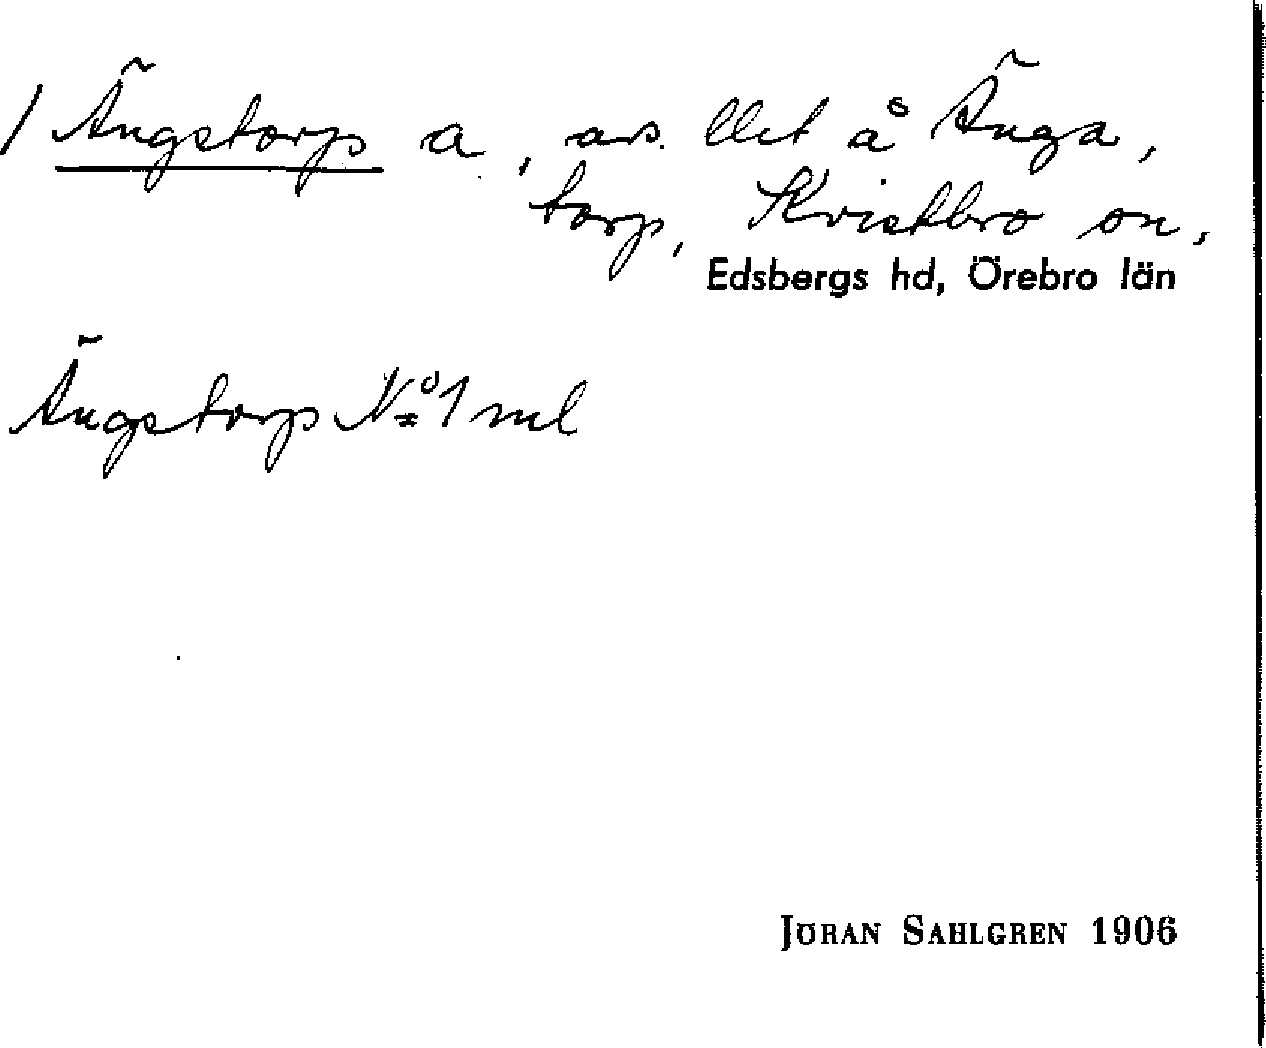 / Ängstorp a, avs. llet å Änga,
torp, Kvistbro sn,
Edsbergs hd, Örebro län
Ängstorp No 1 ml
JÖRAN SAHLGREN 1906